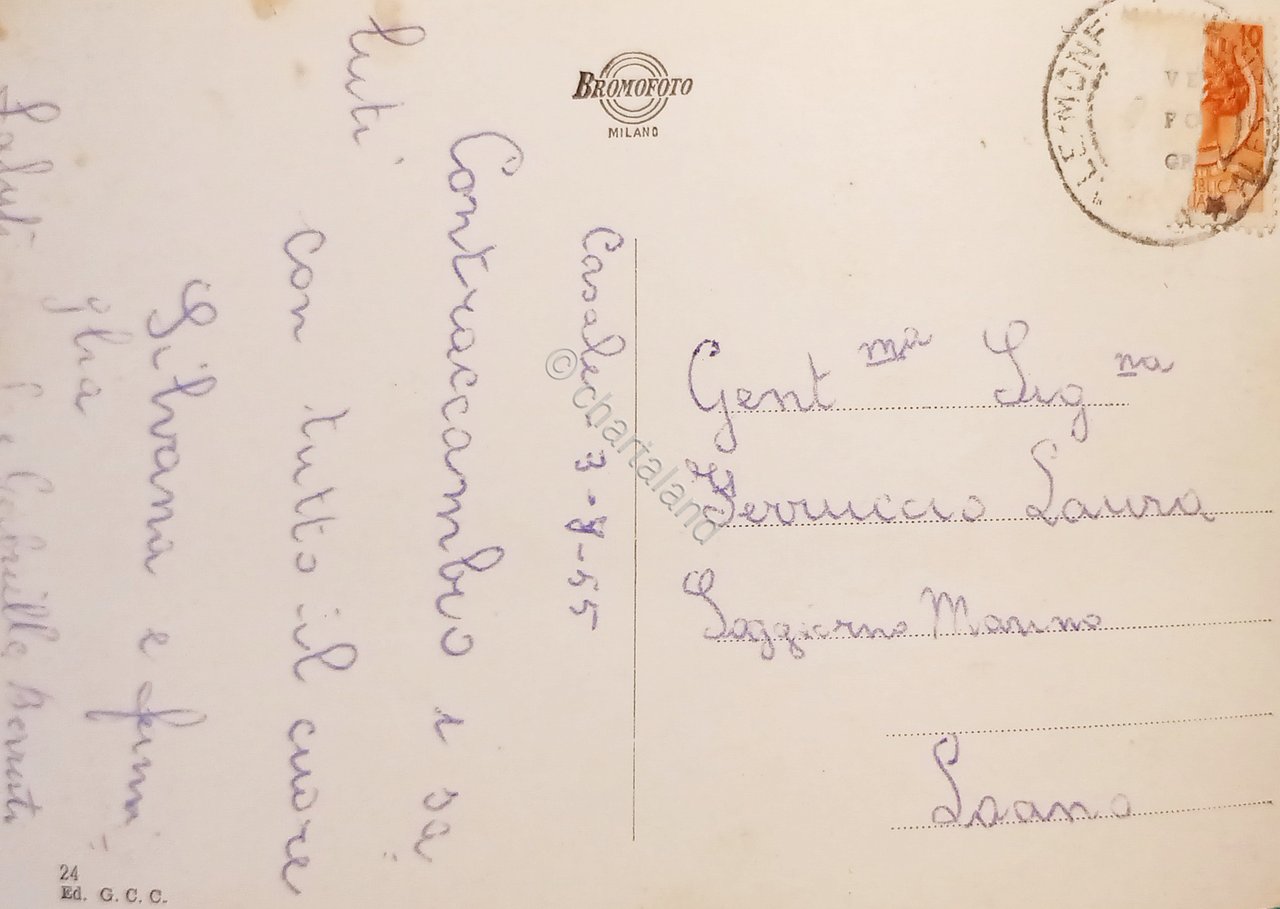 BROMOFOTO
MILANO
LE-MONF
10
Casale 3-8-55
Contraccambio i sa
luti
con tutto il cuore
Silvana e fami
glia
Saluti
Gabriella
Gent ma Sig na
Ferruccio Laura
Soggiorno Marino
Loano
24
Ed. G. C. C.
© chartaland